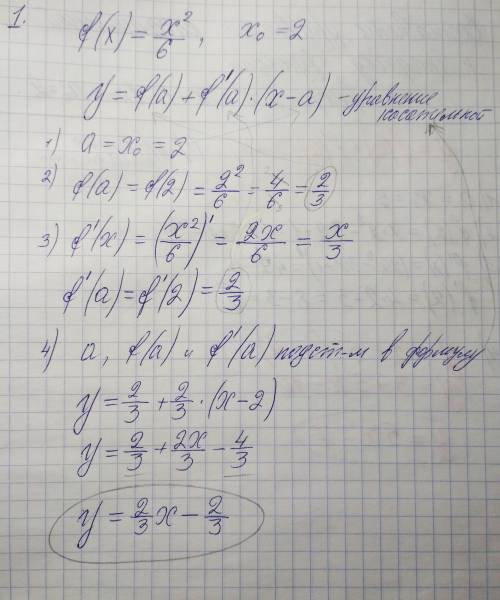 1.
f(x) = x²/6, x₀ = 2
y = f(a) + f'(a)·(x-a) - уравнение касательной
1) a = x₀ = 2
2) f(a) = f(2) = 2²/6 = 4/6 = 2/3
3) f'(x) = (x²/6)' = 2x/6 = x/3
f'(a) = f'(2) = 2/3
4) a, f(a) и f'(a) подст-м в формулу
y = 2/3 + 2/3·(x-2)
y = 2/3 + 2x/3 - 4/3
y = 2/3x - 2/3